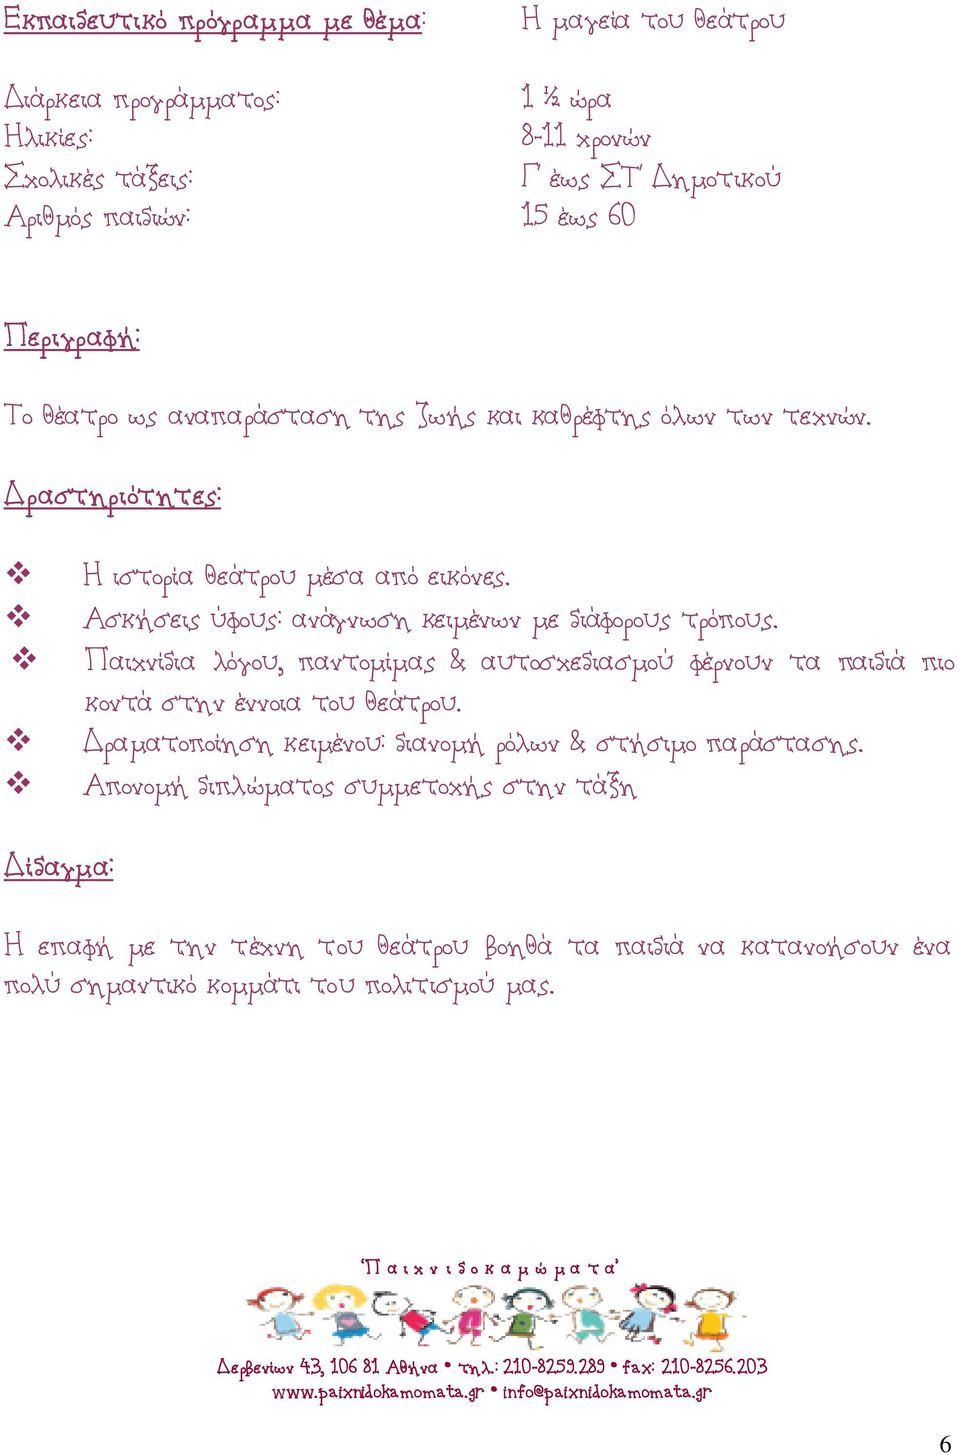 Εκπαιδευτικό πρόγραμμα με θέμα: Η μαγεία του θεάτρου
Διάρκεια προγράμματος: 1 ½ ώρα
Ηλικίες: 8-11 χρονών
Σχολικές τάξεις: Γ' έως ΣΤ' Δημοτικού
Αριθμός παιδιών: 15 έως 60
Περιγραφή:
Το θέατρο ως αναπαράσταση της ζωής και καθρέφτης όλων των τεχνών.
Δραστηριότητες:
❖ Η ιστορία θεάτρου μέσα από εικόνες.
❖ Ασκήσεις ύφους: ανάγνωση κειμένων με διάφορους τρόπους.
❖ Παιχνίδια λόγου, παντομίμας & αυτοσχεδιασμού φέρνουν τα παιδιά πιο
κοντά στην έννοια του θεάτρου.
❖ Δραματοποίηση κειμένου: διανομή ρόλων & στήσιμο παράστασης.
❖ Απονομή διπλώματος συμμετοχής στην τάξη
Δίδαγμα:
Η επαφή με την τέχνη του θεάτρου βοηθά τα παιδιά να κατανοήσουν ένα
πολύ σημαντικό κομμάτι του πολιτισμού μας.
'Παιχνιδοκαμώματα'
Δερβενίων 43, 106 81 Αθήνα • τηλ.: 210-8259.289 • fax: 210-8256.203
www.paixnidokamomata.gr • info@paixnidokamomata.gr
6